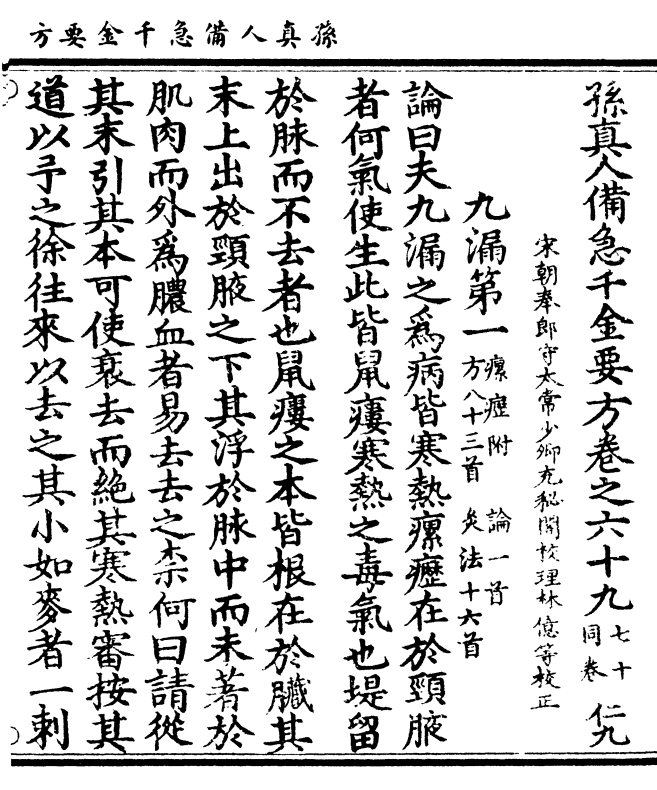 孫真人備急千金要方
孫真人備急千金要方卷之六十九 七十同卷 仁九
宋朝奉郎守太常少卿充秘閣校理林億等校正
九漏第一 瘰癧附 論一首 方八十三首 灸法十六首
論曰夫九漏之爲病皆寒熱瘰癧在於頸腋
者何氣使生此皆鼠瘻寒熱之毒氣也堤留
於脉而不去者也鼠瘻之本皆根在於臟其
末上出於頸腋之下其浮於脉中而未著於
肌肉而外爲膿血者易去去之柰何曰請從
其末引其本可使衰去而絶其寒熱審按其
道以予之徐往來以去之其小如麥者一刺